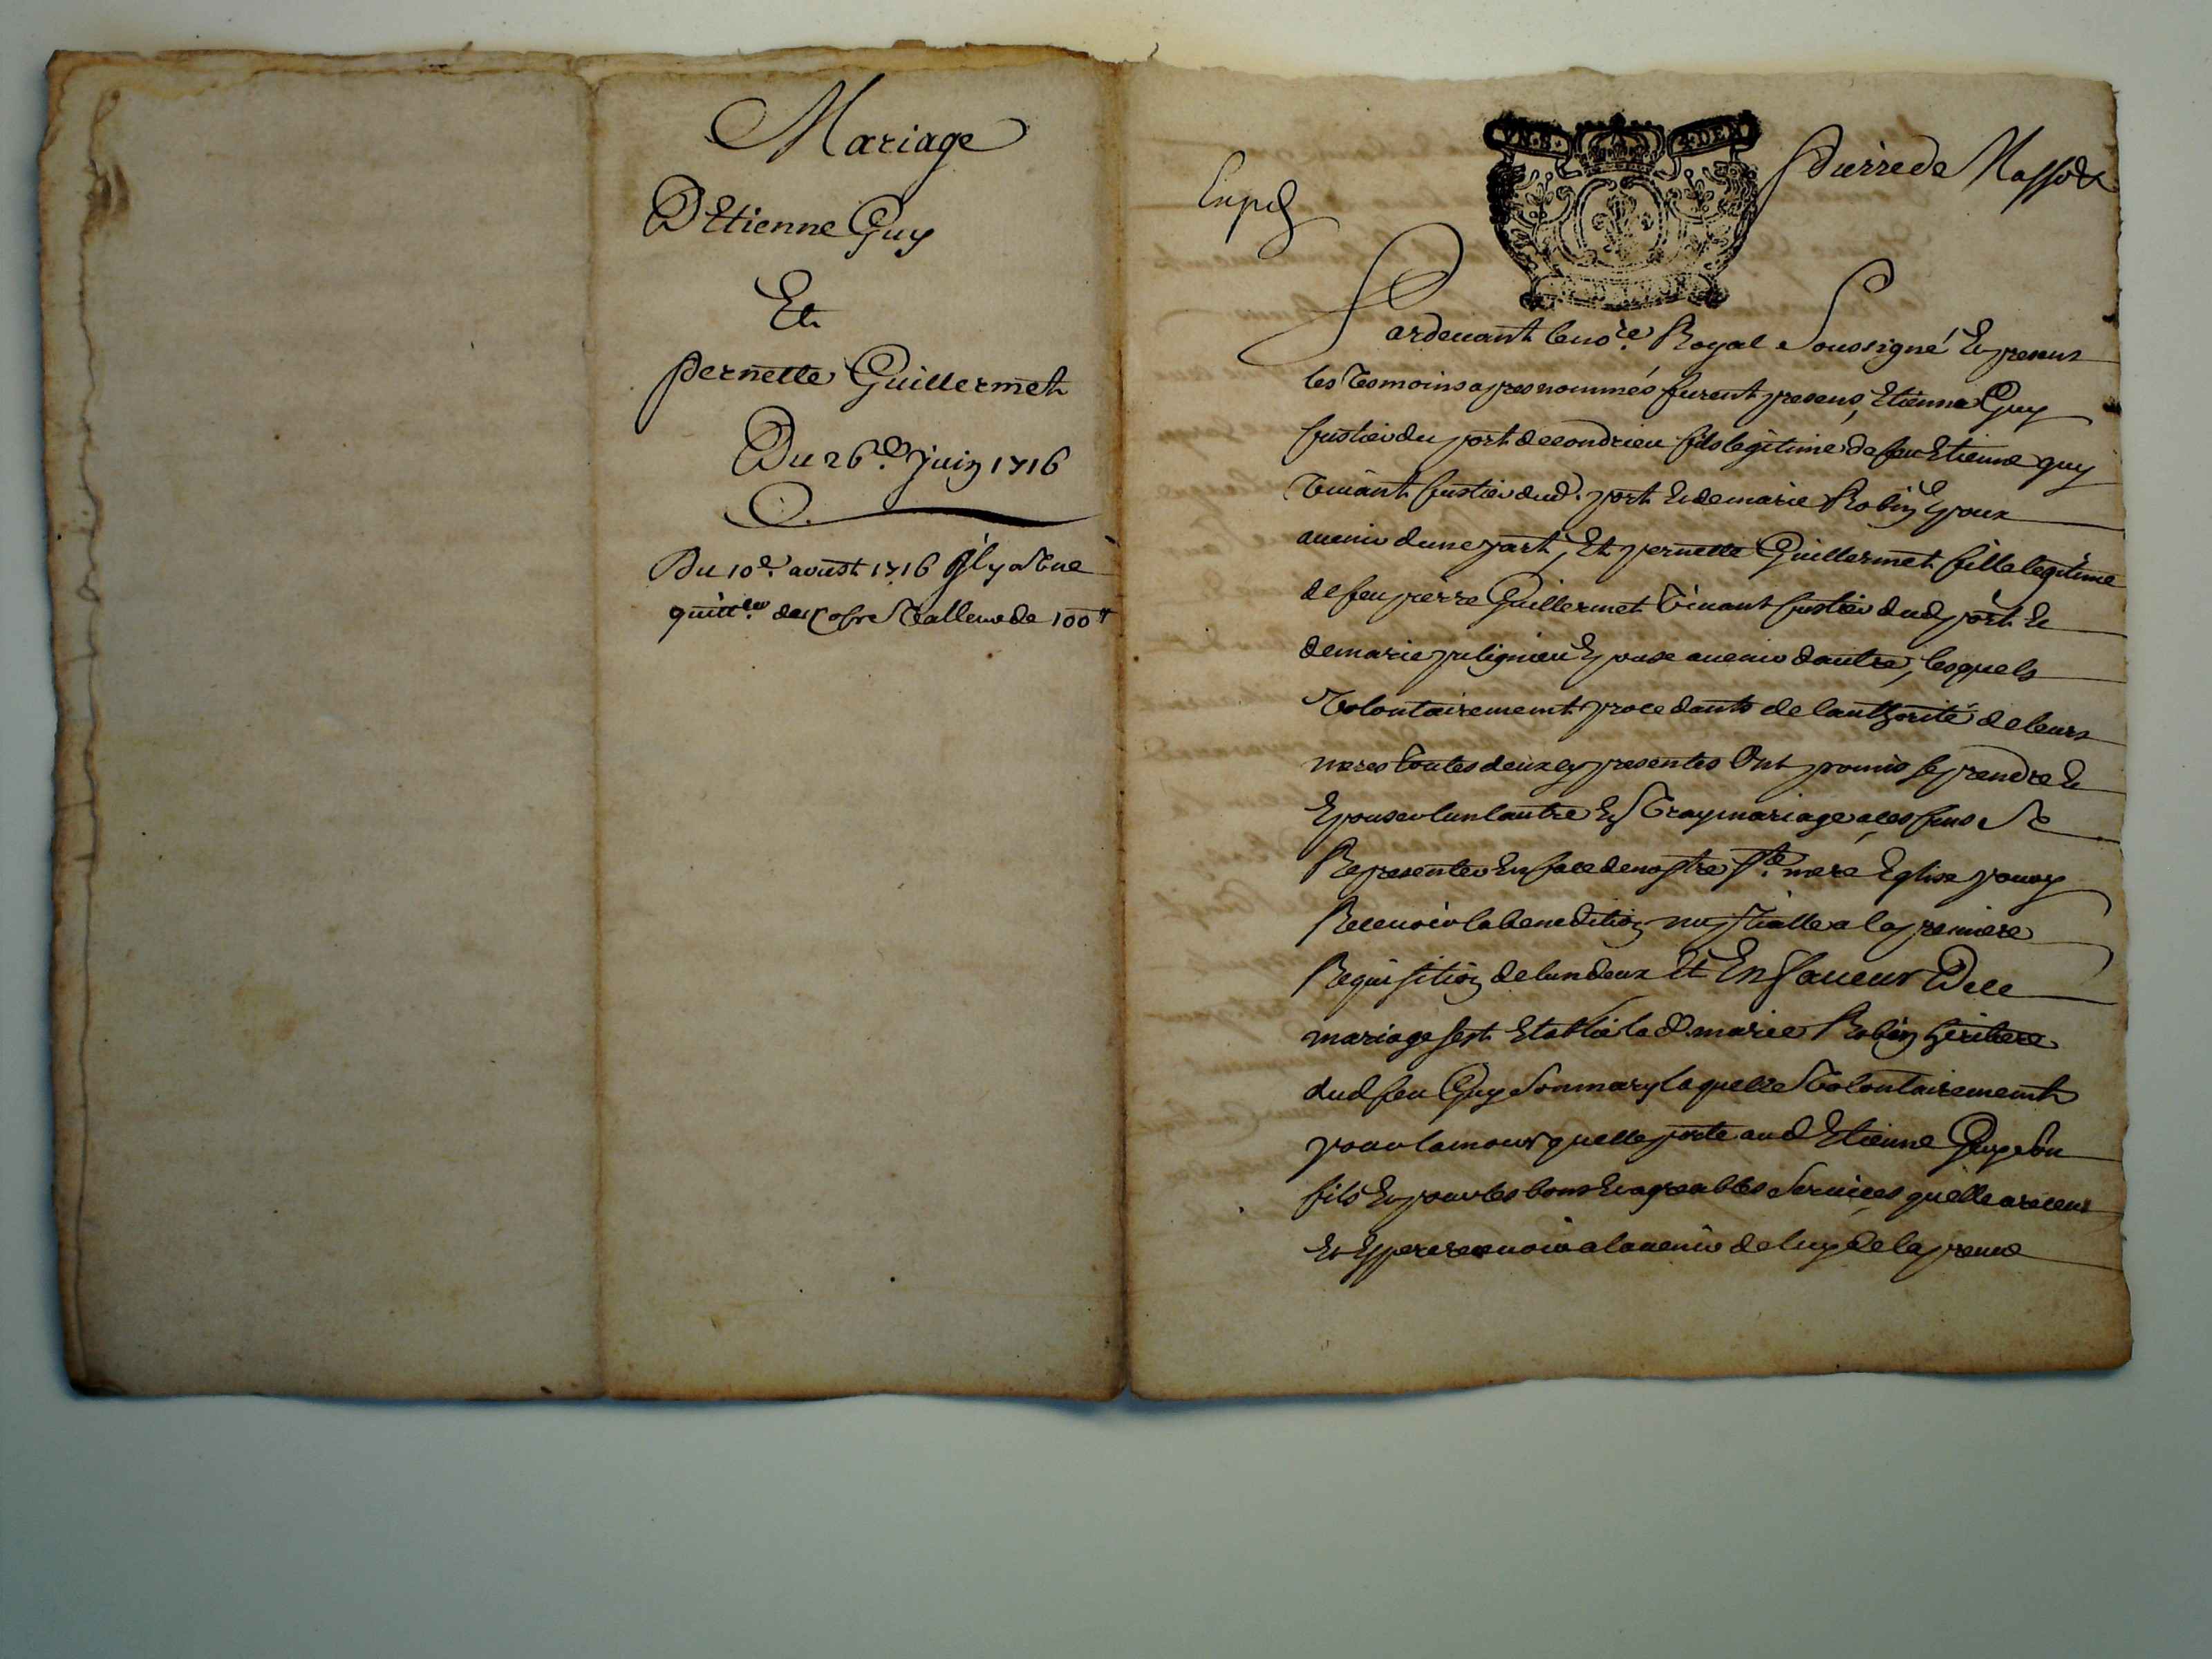 Mariage
D'Etienne Guy
Et
pernette Guillermet
Du 26.e Juin 1716
Du 10e. aoust 1716 Il y a Une
quitt.ce des Cofre Vallent de 100
Expd
UN.S. 4.DEN
pardevant le no.re Royal Soussigné Et presens
les Tesmoins apres nommés furent presens, Etienne Guy
fustier du port de condrieu fils legitime de feu Etienne guy
Vivant fustier dud. port Et de marie Robin Epoux
avenir dune part, Et pernette Guillermet fille legitime
de feu pierre Guillermet Vivant fustier dud port Et
de marie Epouse avenir dautre, lesquels
Volontairement procedants de lauthorité de leurs
meres toutes deux cy presentes Ont promis se prendre Et
Epouser lun lautre En Vray mariage a ces fins se
Representer En face de nostre Ste. mere Eglise pour y
Recevoir la benedition nuptialle a la premiere
Requisition de lun deux Et En faveur De ce
mariage sest Establie lad. marie Robin heritiere
dud feu Guy Son mary laquelle Volontairement
pour lamour quelle porte aud Etienne Guy son
fils Et pour les bons Et agreables Services quelle a receus
Et Espere recevoir a lavenir de luy de la preuve